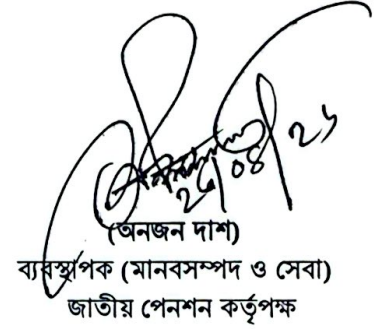 (অনজন দাশ)
ব্যবস্থাপক (মানবসম্পদ ও সেবা)
জাতীয় পেনশন কর্তৃপক্ষ